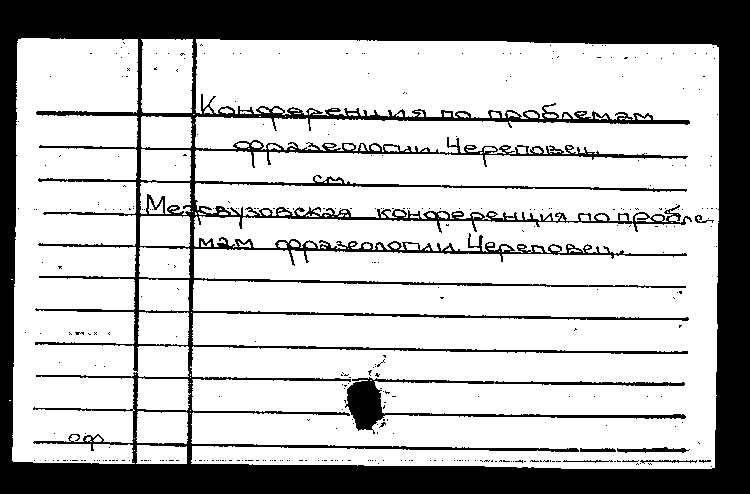 Конференция по проблемам
фразеологии. Череповец.
см.
Межвузовская конференция по пробле-
мам фразеологии. Череповец.
оф